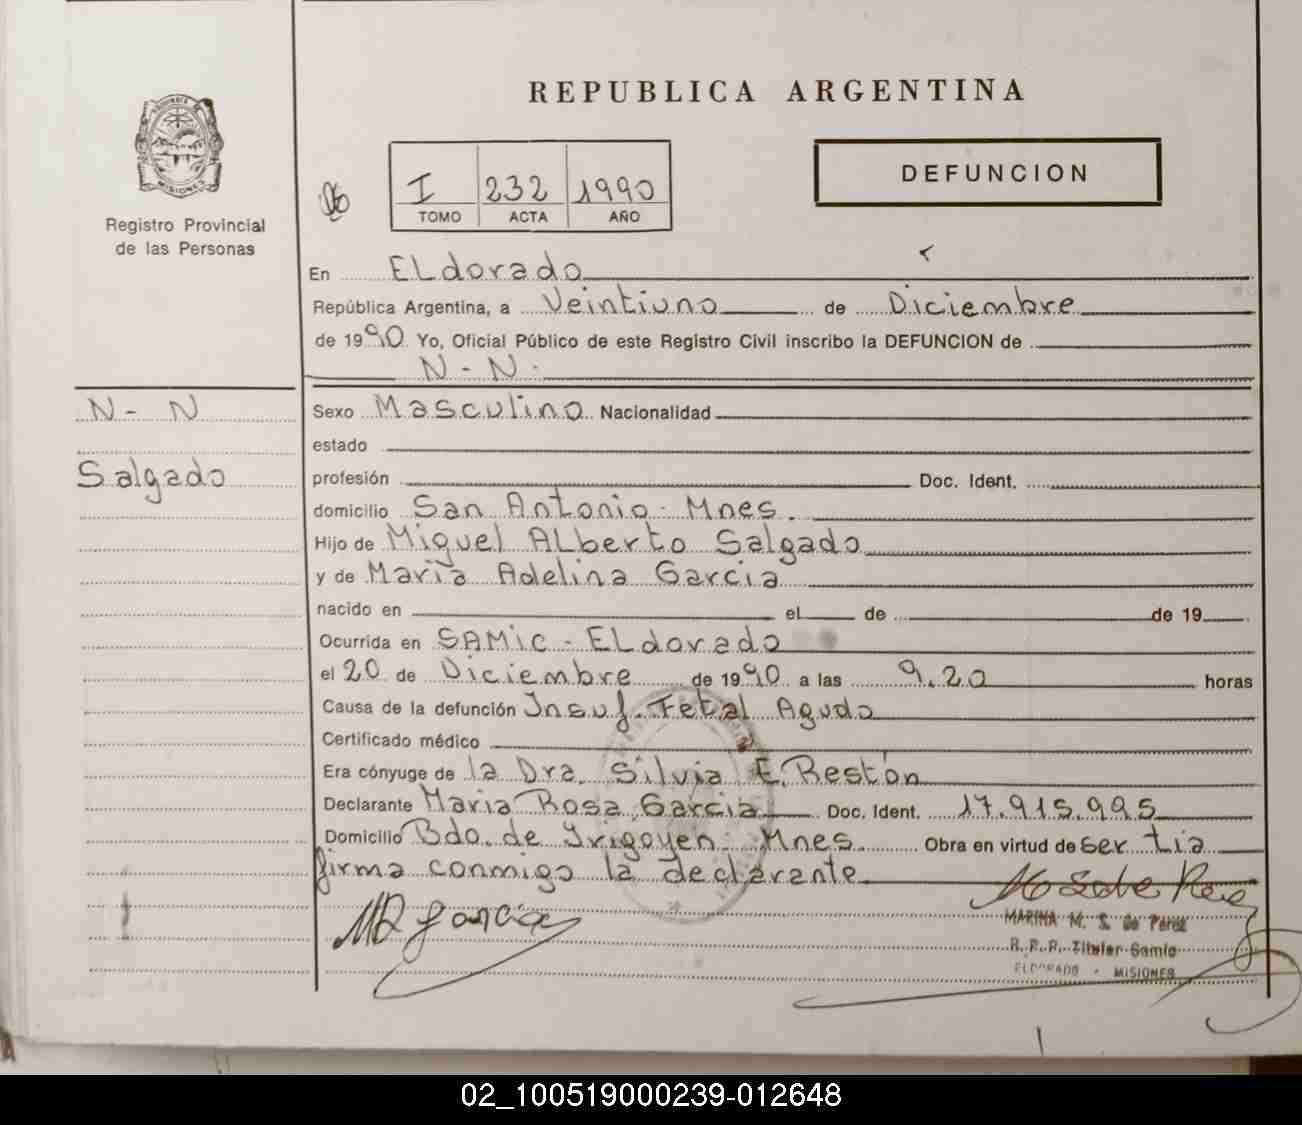 REPUBLICA ARGENTINA
DEFUNCION
MISIONES
Registro Provincial
de las Personas
I 232 1990
TOMO ACTA AÑO
En ELdorado
República Argentina, a Veintiuno de Diciembre
de 1990 Yo, Oficial Público de este Registro Civil inscribo la DEFUNCION de
N - N.
N - N
Salgado
Sexo Masculino Nacionalidad
estado
profesión Doc. Ident.
domicilio San Antonio. Mnes.
Hijo de Miguel ALberto Salgado
y de Maria Adelina Garcia
nacido en el de de 19
Ocurrida en SAMIC - ELdorado
el 20 de Diciembre de 1990 a las 9.20 horas
Causa de la defunción Insuf. Fetal Agudo
Certificado médico
Era cónyuge de la Dra. Silvia E. Restón
Declarante Maria Rosa Garcia Doc. Ident. 17.915.995
Domicilio Bdo. de Irigoyen. Mnes. Obra en virtud de ser tia
firma conmigo la declarante
MR Garcia
MARINA M. S. de Perez
R. P. P. Titular Samic
ELDORADO - MISIONES
02_100519000239-012648